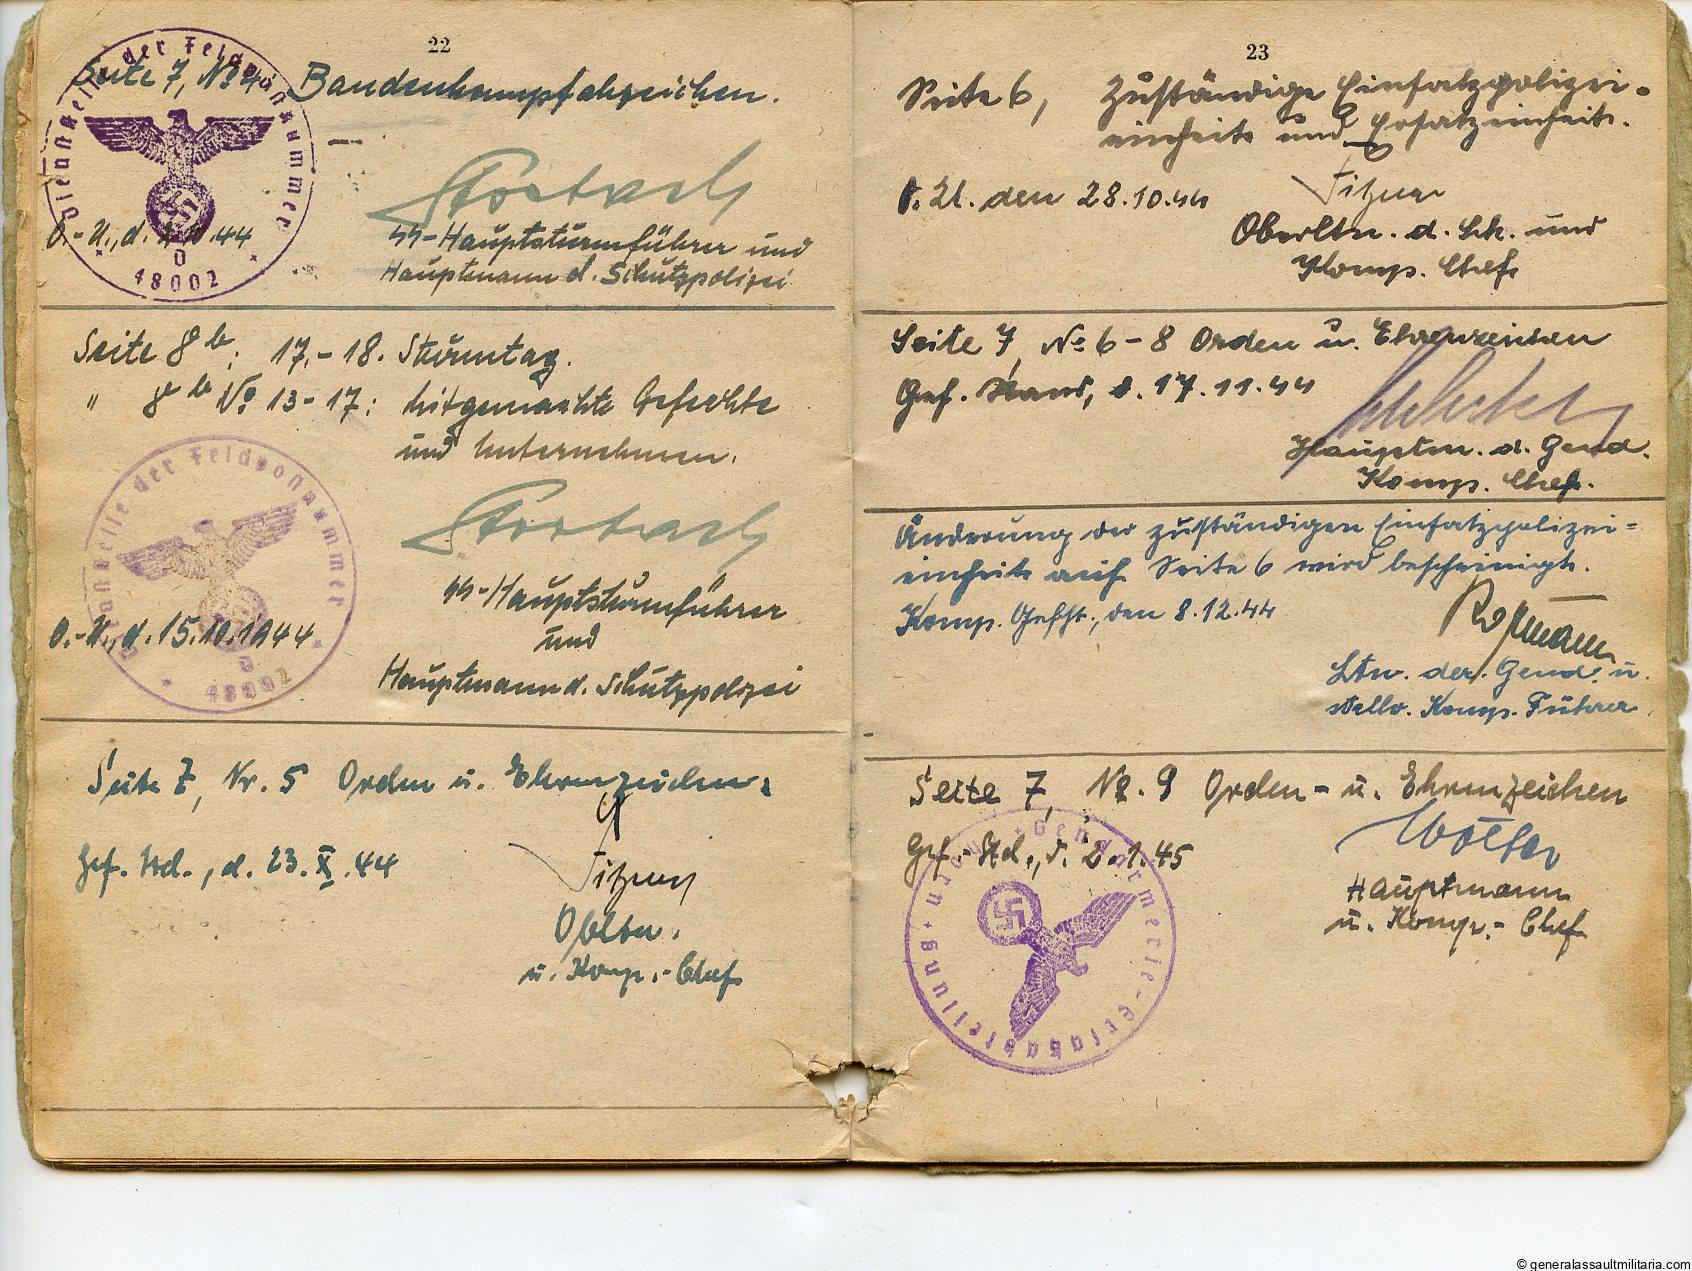 22
Seite 7, № 4 Bandenkampfabzeichen.
Dienststelle der Feldpostnummer
O.-U., d. 10.44
SS-Hauptsturmführer und
Hauptmann d. Schutzpolizei
48002
Seite 8b: 17.-18. Sturmtag.
" 8b № 13-17: Mitgemachte Gefechte
und Unternehmen.
Dienststelle der Feldpostnummer
O.-U., d. 15.10.1944
SS-Hauptsturmführer
und
Hauptmann d. Schutzpolizei
48002
Seite 7, Nr. 5 Orden u. Ehrenzeichen.
Gef. Std., d. 23.X.44
Obltn.
u. Komp.-Chef
23
Seite 6, Zuständige Einsatzpolizei-
einheit und Ersatzeinheit.
O. U. den 28.10.44
Oberltn. d. Sch. und
Komp. Chef
Seite 7, № 6-8 Orden u. Ehrenzeichen
Gef. Stand, d. 17.11.44
Hauptm. d. Gend.
Komp. Chef.
Änderung der zuständigen Einsatzpolizei=
einheit auf Seite 6 wird bescheinigt.
Komp. Gefst., den 8.12.44
Ltn. der Gend. u.
stellv. Komp. Führer.
Seite 7, № 9 Orden- u. Ehrenzeichen
Gef.-Std., d. 2.1.45
Wolter
Hauptmann
u. Komp.-Chef
Gendarmerie-Ersatzabteilung
© generalassaultmilitaria.com